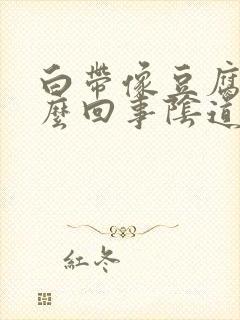 白帶像豆腐
麼回事陰道
紅冬